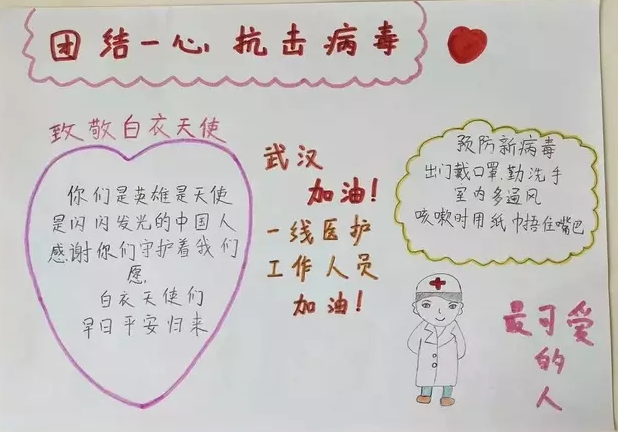 团结一心 抗击病毒
致敬白衣天使
你们是英雄是天使
是闪闪发光的中国人
感谢你们守护着我们
愿,
白衣天使们
早日平安归来
武汉
加油!
一线医护
工作人员
加油!
预防新病毒
出门戴口罩.勤洗手
室内多通风
咳嗽时用纸巾捂住嘴巴
最可爱
的
人